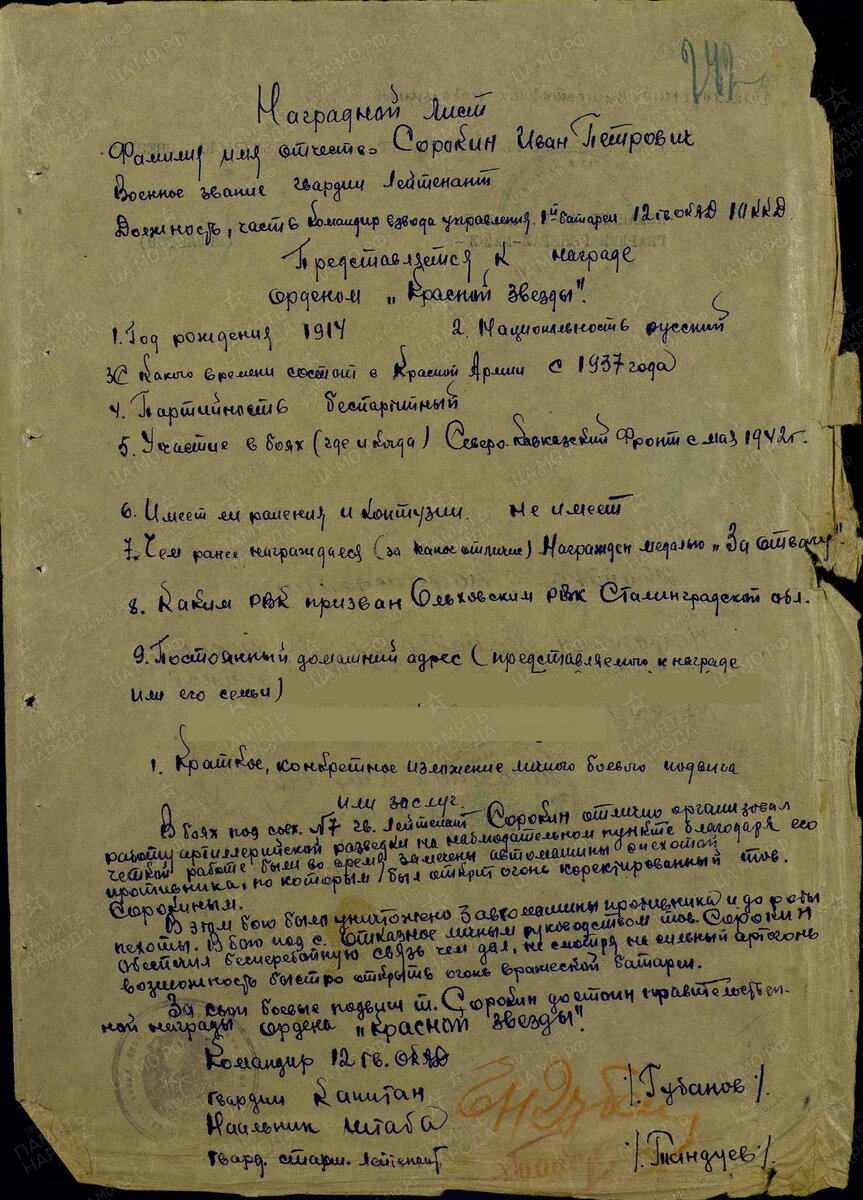 242
Наградной лист
Фамилия имя отчество Сорокин Иван Петрович
Военное звание гвардии Лейтенант
Должность, часть Командир взвода управления 1й батареи 12 гв. ОКАД 10 ККД
Представляется к награде
орденом „Красной звезды".
1. Год рождения 1914 2. Национальность русский
3 С какого времени состоит в Красной Армии с 1937 года
4. Партийность беспартийный
5. Участие в боях (где и когда) Северо-Кавказский Фронт с мая 1942 г.
6. Имеет ли ранения и контузии. не имеет
7. Чем ранее награждался (за какое отличие) Награжден медалью „За отвагу"
8. Каким РВК призван Ольховским РВК Сталинградской обл.
9. Постоянный домашний адрес (представляемого к награде
или его семьи)
1. Краткое, конкретное изложение личного боевого подвига
или заслуг.
В боях под сов. №7 гв. Лейтенант Сорокин отлично организовал
работу артиллерийской разведки на наблюдательном пункте благодаря его
четкой работе были во время замечены автомашины с пехотой
противника, по которым был открит огонь коректированный тов.
Сорокиным.
В этом бою было уничтожено 3 автомашины противника и до роты
пехоты. В бою под с. Отказное личным руководством тов. Сорокин
обеспечил бесперебойную связь чем дал, не смотря на сильный артогонь
возможность быстро открыть огонь вражеской батареи.
За свои боевые подвиги т. Сорокин достоин правительствен-
ной награды ордена „Красной звезды".
Командир 12 гв. ОКАД
гвардии Капитан /Губанов/.
Начальник штаба
гвард. старш. лейтенант /Тандуев/.
ЦАМО.РФ
ПАМЯТЬ НАРОДА